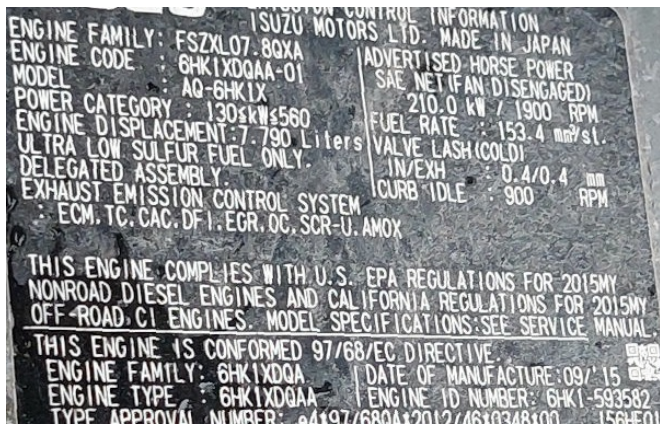 EMISSION CONTROL INFORMATION
ISUZU MOTORS LTD. MADE IN JAPAN
ENGINE FAMILY: FSZXL07.8QXA
ENGINE CODE : 6HK1XDQAA-01
MODEL : AQ-6HK1X
POWER CATEGORY : 130≤kW≤560
ENGINE DISPLACEMENT:7.790 Liters
ULTRA LOW SULFUR FUEL ONLY.
DELEGATED ASSEMBLY.
EXHAUST EMISSION CONTROL SYSTEM
: ECM.TC.CAC.DFI.EGR.OC.SCR-U.AMOX
ADVERTISED HORSE POWER
SAE NET(FAN DISENGAGED)
210.0 kW / 1900 RPM
FUEL RATE : 153.4 mm³/st.
VALVE LASH(COLD)
IN/EXH : 0.4/0.4 mm
CURB IDLE : 900 RPM
THIS ENGINE COMPLIES WITH U.S. EPA REGULATIONS FOR 2015MY
NONROAD DIESEL ENGINES AND CALIFORNIA REGULATIONS FOR 2015MY
OFF-ROAD.CI ENGINES. MODEL SPECIFICATIONS:SEE SERVICE MANUAL.
THIS ENGINE IS CONFORMED 97/68/EC DIRECTIVE.
ENGINE FAMILY: 6HK1XDQA
ENGINE TYPE : 6HK1XDQAA
DATE OF MANUFACTURE:09/'15
ENGINE ID NUMBER: 6HK1-593582
TYPE APPROVAL NUMBER: e4*97/68QA*2012/46*0348*00 156HF01